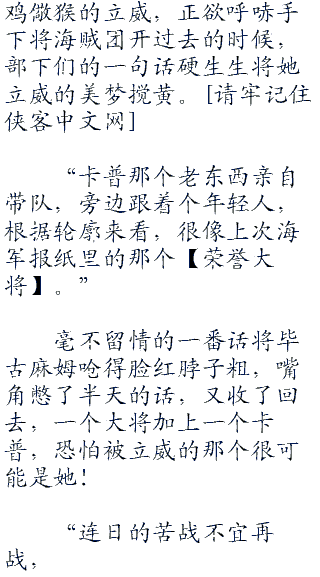 鸡儆猴的立威，正欲呼哧手
下将海贼团开过去的时候，
部下们的一句话硬生生将她
立威的美梦搅黄。[请牢记住
侠客中文网]
“卡普那个老东西亲自
带队，旁边跟着个年轻人，
根据轮廓来看，很像上次海
军报纸里的那个【荣誉大
将】。”
毫不留情的一番话将毕
古麻姆呛得脸红脖子粗，嘴
角憋了半天的话，又收了回
去，一个大将加上一个卡
普，恐怕被立威的那个很可
能是她！
“连日的苦战不宜再
战，